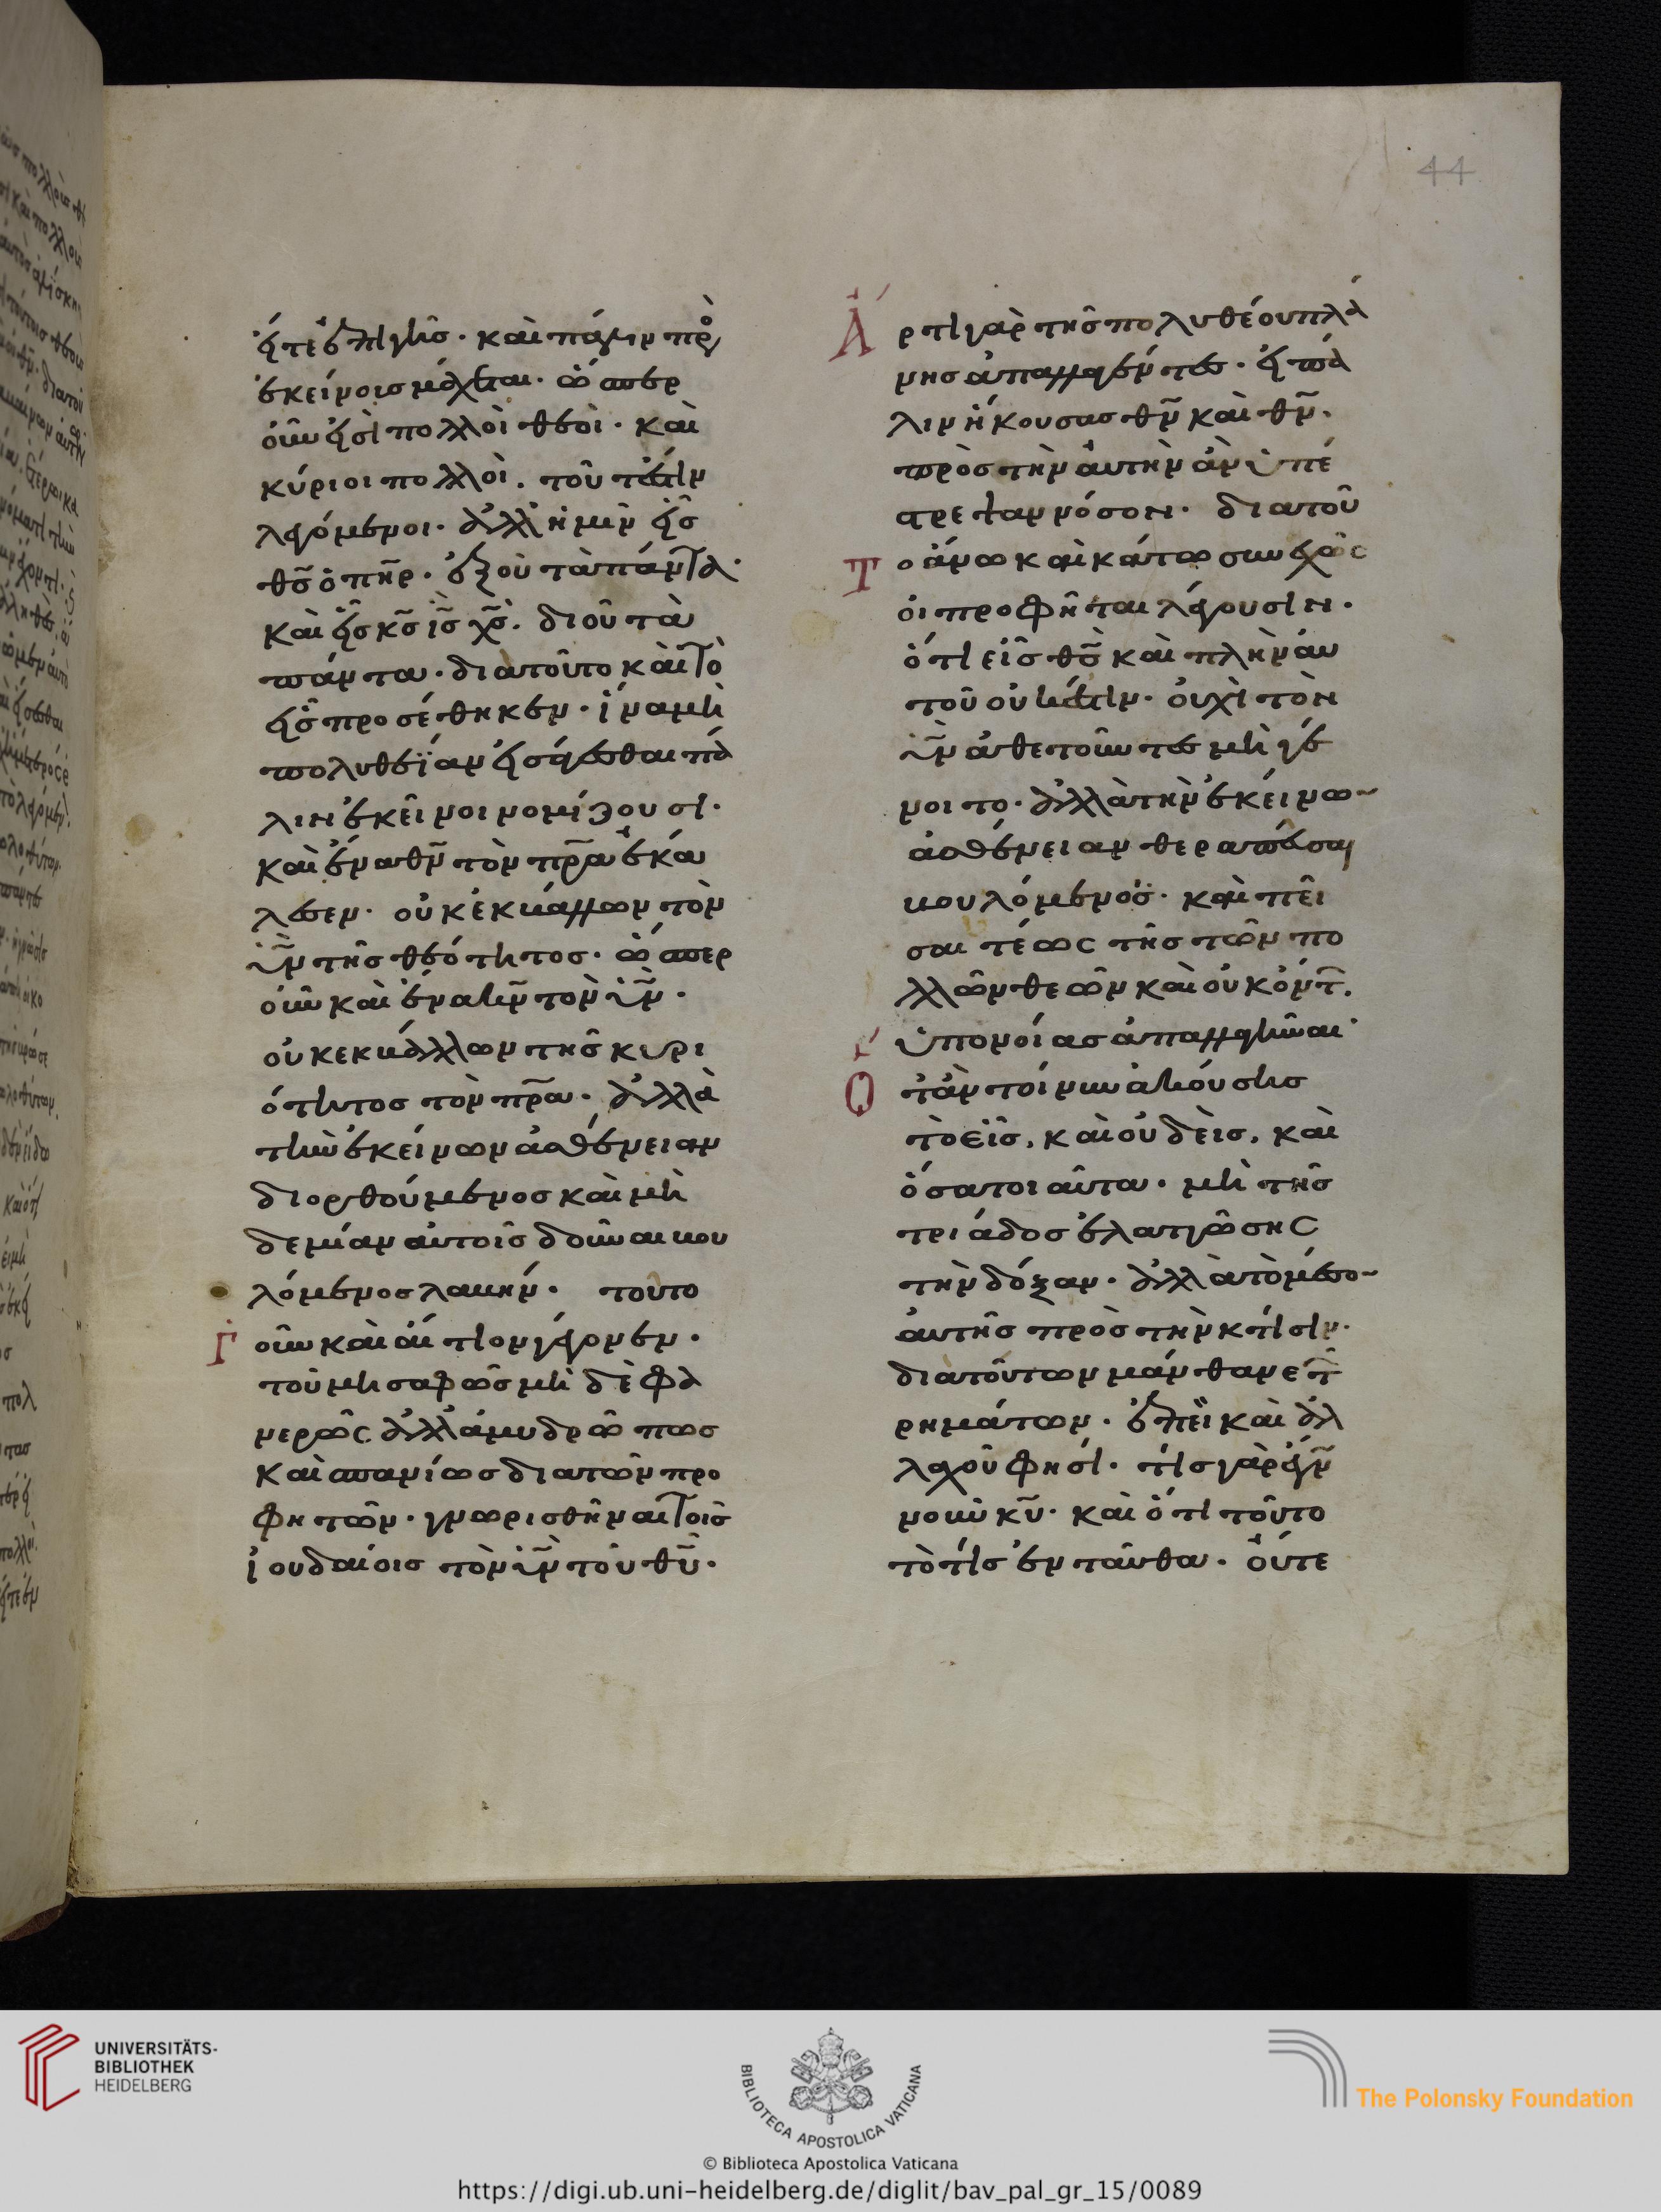 44
εἴτε ἐπὶ γῆς· καὶ πάλιν πρὸς
ἐκείνοις μάχεται· ὥσπερ
οὖν εἰσὶ πολλοὶ θεοὶ· καὶ
κύριοι πολλοὶ· τουτέστιν
λεγόμενοι· ἀλλ' ἡμῖν εἷς
θς̄ ὁ πηρ̄· ἐξ οὗ τὰ πάντα·
καὶ εἷς κς̄ ις̄ χς̄· δι οὗ τὰ
πάντα· διατοῦτο καὶ τὸ
εἷς προσέθηκεν· ἵνα μὴ
πολυθεΐαν εἰσάγεσθαι πά
λιν ἐκεῖνοι νομίζουσι·
καὶ ἕνα θν̄ τὸν πρ̄α ἐκά
λεσεν· οὐκ ἐκβάλλων τὸν
ιν̄ τῆς θεότητος· ὥσπερ
οὖν καὶ ἕνα κν̄ τὸν υν̄·
οὐκ ἐκβάλλων τῆς κυρι
ότητος τὸν πρ̄α· ἀλλὰ
τὴν ἐκείνων ἀσθένειαν
διορθούμενος καὶ μὴ
δεμίαν αὐτοῖς δοῦναι βου
λόμενος λαβήν· τοῦτο
Γ οὖν καὶ αἴτιον γέγονεν·
τοῦ μὴ σαφῶς μὴ δὲ φα
νερῶς ἀλλ' ἀμυδρῶς πως
καὶ σπανίως διατῶν προ
φητῶν· γνωρισθῆναι τοῖς
ἰουδαίοις τὸν υν̄ τοῦ θῡ·
Ἄ ρτι γὰρ τῆς πολυθέου πλά
νης ἀπαλλαγέντες· εἰ πά
λιν ἤκουσας θν̄ καὶ θν̄·
πρὸς τὴν αὐτὴν ἂν ὑπέ
στρεψαν νόσον· διατοῦ
Τ ο ἄνω καὶ κάτω συνεχῶς
οἱ προφῆται λέγουσιν·
ὅτι εἷς θς̄ καὶ πλὴν αυ
τοῦ οὐκ ἔστιν· οὐχὶ τὸν
υν̄ ἀθετοῦντες μὴ γέ
νοιτο· ἀλλὰ τὴν ἐκείνων
ἀσθένειαν θεραπεῦσαι
βουλόμενος· καὶ πεῖ
σαι τέως τῆς τῶν πο
λλῶν θεῶν καὶ οὐκ ὄντ
ὑπονοίας ἀπαλλαγῆναι·
Ὅ τἂν τοίνυν ἀκούσης
τὸ εἷς, καὶ οὐδεὶς, καὶ
ὅσα τοιαῦτα· μὴ τῆς
τριάδος ἐλαττώσης
τὴν δόξαν· ἀλλὰ τὸ μέσον
αὐτῆς πρὸς τὴν κτίσιν·
διατούτων μάνθανε τ
ρημάτων· ἐπεὶ καὶ ἀλ
λαχοῦ φησί· τίς γὰρ ἔγν
νοῦν κῡ· καὶ ὅτι τοῦτο
τὸ τίς ἐνταῦθα· οὔτε
UNIVERSITÄTS-
BIBLIOTHEK
HEIDELBERG
BIBLIOTECA APOSTOLICA VATICANA
The Polonsky Foundation
© Biblioteca Apostolica Vaticana
https://digi.ub.uni-heidelberg.de/diglit/bav_pal_gr_15/0089